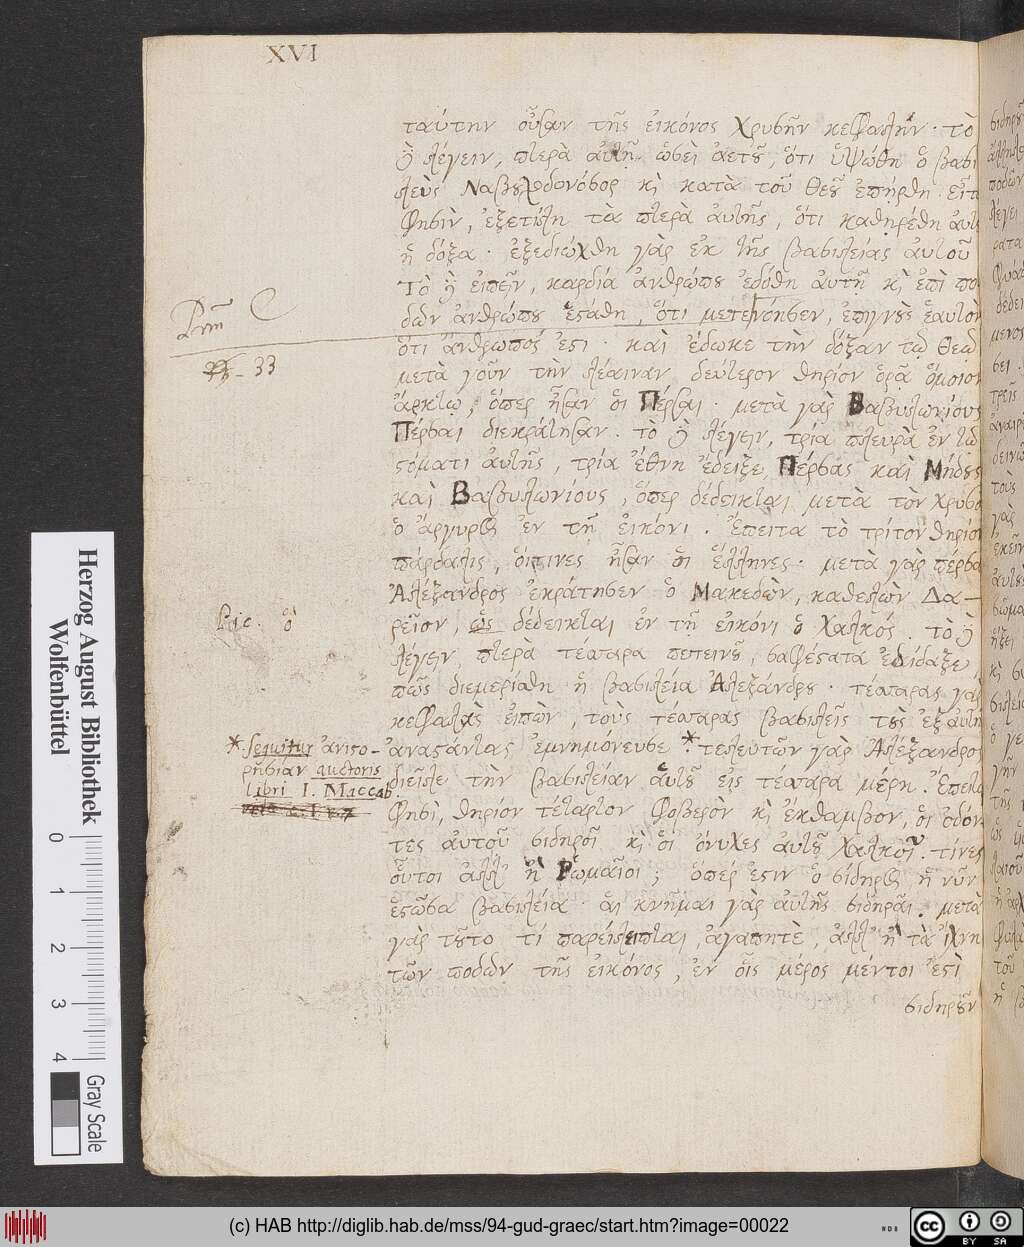 XVI
ταύτην οὖσαν τῆς εἰκόνος χρυσῆν κεφαλήν. τὸ
λέγειν, πτερὰ αὐτῇ ὡσεὶ ἀετοῦ, ὅτι ὑψώθη ὁ βασι
λεὺς Ναβουχοδονόσορ κὶ κατὰ τοῦ Θεοῦ ἐπήρθη. εἶτα
φησὶν, ἐξετίλη τὰ πτερὰ ἀυτῆς, ὅτι καθηρέθη ἀυτ
ἡ δόξα. ἐξεδιώχθη γὰρ ἐκ τῆς βασιλείας ἀυτοῦ
Τὸ εἰπεῖν, καρδία ἀνθρώπου ἐδόθη ἀυτῇ κὶ ἐπὶ πο
δῶν ἀνθρώπου ἐστάθη, ὅτι μετενόησεν, ἐπιγνοὺς ἑαυτὸν
ὅτι ἄνθρωπός ἐστι. καὶ ἔδωκε τὴν δόξαν τῷ Θεῷ
μετὰ γοῦν τὴν λέαιναν, δεύτερον θηρίον ὁρᾷ ὅμοιον
ἄρκτῳ, ὅπερ ἦσαν ὁι Πέρσαι. μετὰ γὰρ Βαβυλωνίους
Πέρσαι διεκράτησαν. τὸ λέγειν, τρία πλευρὰ ἐν τῷ
στόματι ἀυτῆς, τρία ἔθνη ἔδειξε, Πέρσας καὶ Μήδους
καὶ Βαβυλωνίους, ὅπερ δέδεικται μετὰ τὸν χρυσὸ
ὁ ἄργυρος ἐν τῇ εἰκόνι. Ἔπειτα τὸ τρίτον θηρίον
πάρδαλις, ὅιτινες ἦσαν ὁι ἕλληνες. μετὰ γὰρ πέρσα
Ἀλέξανδρος ἐκράτησεν ὁ Μακεδὼν, καθελὼν Δα-
ρεῖον, ὡς δέδεικται ἐν τῇ εἰκόνι ὁ χαλκός. τὸ
λέγειν, πτερὰ τέσσαρα πετεινοῦ, σαφέστατα ἐδίδαξε
πῶς διεμερίσθη ἡ βασιλεία Ἀλεξάνδρου. τέσσαρας γὰρ
κεφαλὰς εἰπὼν, τοὺς τέσσαρας βασιλεῖς τοὺς ἐξ ἀυτῆ
ἀναστάντας ἐμνημόνευσε *. τελευτῶν γὰρ Ἀλέξανδρος
διεῖλε τὴν βασιλείαν ἀυτοῦ εἰς τέσσαρα μέρη. Ἔπειτα
φησὶ, θηρίον τέταρτον φοβερὸν κὶ ἔκθαμβον, ὁι ὀδόν
τες ἀυτοῦ σιδηροῖ κὶ ὁι ὄνυχες ἀυτοῦ χαλκοῖ. τίνες
οὗτοι ἀλλ' ἢ Ῥωμαῖοι; ὅπερ ἐστὶν ὁ σίδηρος ἡ νῦν
ἑστῶσα βασιλεία. ἁι κνῆμαι γὰρ ἀυτῆς σιδηραῖ. μετὰ
γὰρ τοῦτο τί παρείληπται, ἀγαπητὲ, ἀλλ' ἢ τὰ ἴχνη
τῶν ποδῶν τῆς εἰκόνος, ἐν οἷς μέρος μέντοι ἐστὶ
σιδηροῦν
33
Pic. ὃ
* sequitur ἀνιστο-
ρησίαν auctoris
libri I. Maccab.
Herzog August Bibliothek
Wolfenbüttel
0 1 2 3 4
Gray Scale
(c) HAB http://diglib.hab.de/mss/94-gud-graec/start.htm?image=00022
WDB
cc BY SA